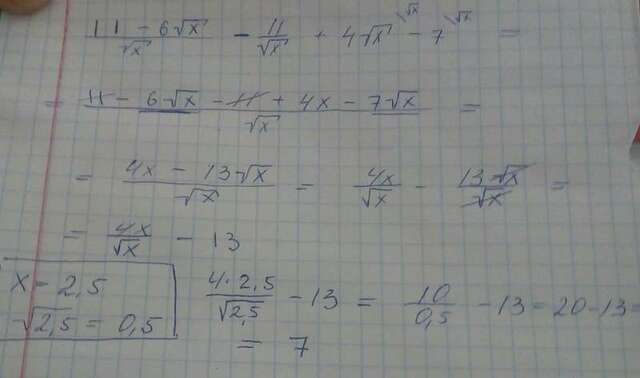 (11 - 6√x)/√x - 11/√x + 4√x^√x - 7^√x =
= (11 - 6√x - 11 + 4x - 7√x)/√x =
= (4x - 13√x)/√x = 4x/√x - 13√x/√x =
= 4x/√x - 13
x = 2,5
√2,5 = 0,5
(4·2,5)/√2,5 - 13 = 10/0,5 - 13 = 20 - 13 =
= 7